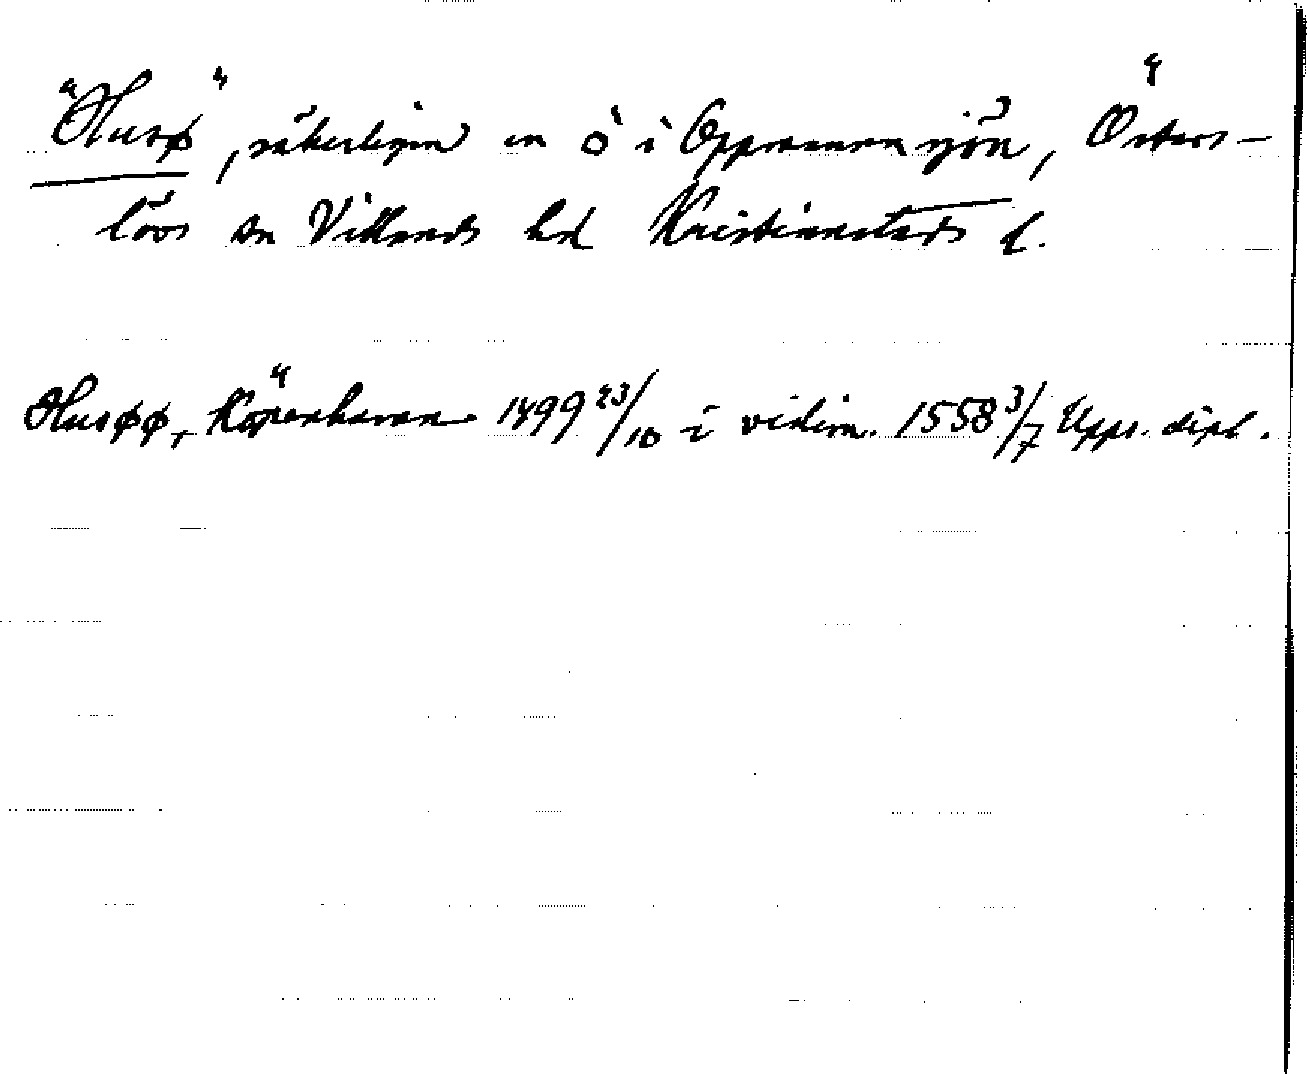 "Husø", säkerligen en ö i Oppmannasjön, Östers-
lövs sn Villands hd Kristianstads l.
Husøø, Köpenhavn 1499 23/10 i vidim. 1558 3/7 Upps. dipl.